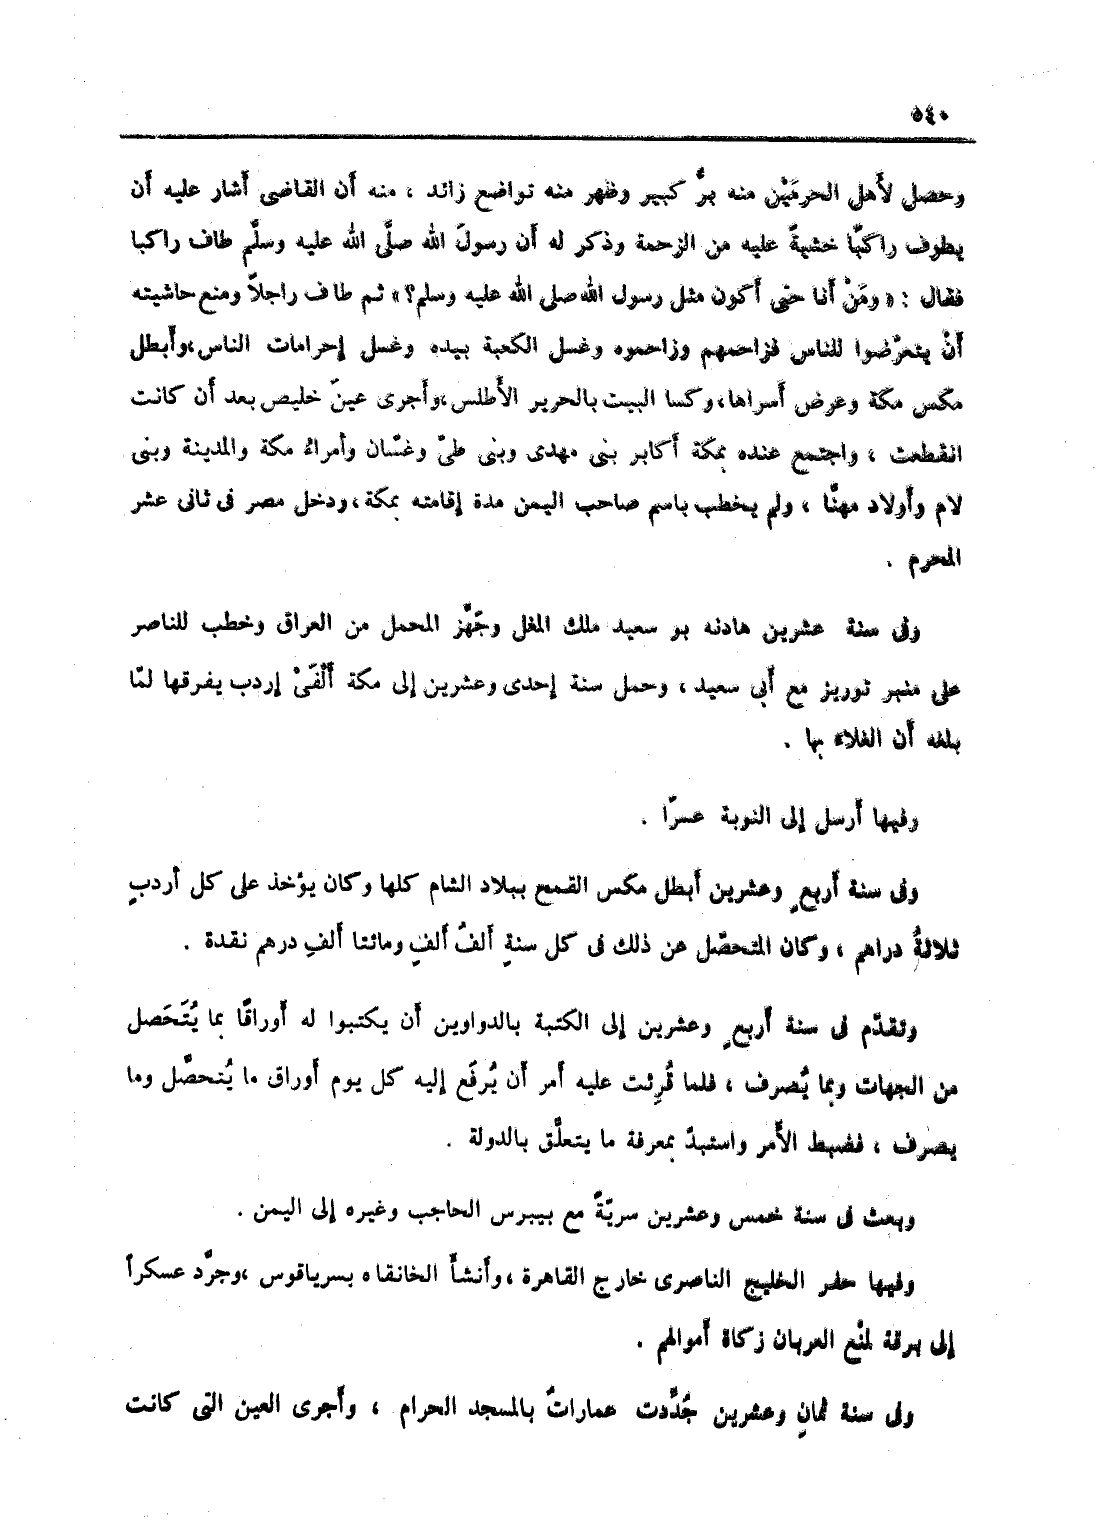 ٥٤٠
وحصل لأَهل الحرمَيْن منه برٌّ كبير وظهر منه تواضع زائد ، منه أن القاضى أشار عليه أن
يطوف راكبًا خشيةً عليه من الزحمة وذكر له أن رسولَ الله صلَّى الله عليه وسلَّم طاف راكبا
فقال : « ومَنْ أنا حتى أكون مثل رسول الله صلى الله عليه وسلم؟» ثم طاف راجلاً ومنع حاشيته
أنْ يتعرّضوا للناس فزاحمهم وزاحموه وغسل الكعبة بيده وغسل إحرامات الناس،وأبطل
مكس مكة وعوض أمراها،وكسا البيت بالحرير الأطلس،وأجرى عينَ خليص بعد أن كانت
انقطعت ، واجتمع عنده بمكة أكابر بنى مهدى وبنى طىّ وغسّان وأمراءُ مكة والمدينة وبنى
لام وأولاد مهنَّا ، ولم يخطب باسم صاحب اليمن مدة إقامته بمكة،ودخل مصر فى ثانى عشر
المحرم .
وفى سنة عشرين هادنه بو سعيد ملك المغل وجَهَّز المحمل من العراق وخطب للناصر
على منبر توريز مع أبى سعيد ، وحمل سنة إحدى وعشرين إلى مكة أَلْفَىْ إردب يفرقها لمّا
بلغه أن الغلاء بها .
وفيها أرسل إلى النوبة عسرًا .
وفى سنة أربعٍ وعشرين أبطل مكس القمح ببلاد الشام كلها وكان يؤخذ على كل أردبٍ
ثلاثةُ دراهم ، وكان المتحصّل عن ذلك فى كل سنةٍ ألفُ ألفٍ ومائتا ألفِ درهم نقدة .
وتقدّم فى سنة أربعٍ وعشرين إلى الكتبة بالدواوين أن يكتبوا له أوراقًا بما يُتَحَصل
من الجهات وبما يُصرف ، فلما قُرِئت عليه أمر أن يُرفَع إليه كل يوم أوراق ما يُتحصَّل وما
يصرف ، فضبط الأمر واستبدّ بمعرفة ما يتعلَّق بالدولة .
وبعث فى سنة خمس وعشرين سريّةً مع بيبرس الحاجب وغيره إلى اليمن .
وفيها حفر الخليج الناصرى خارج القاهرة ،وأنشأ الخانقاه بسرياقوس ،وجرَّد عسكراً
إلى برقة لمنْع العربان زكاة أموالهم .
وفى سنة ثمانٍ وعشرين جُدَّدت عماراتٌ بالمسجد الحرام ، وأجرى العين التى كانت